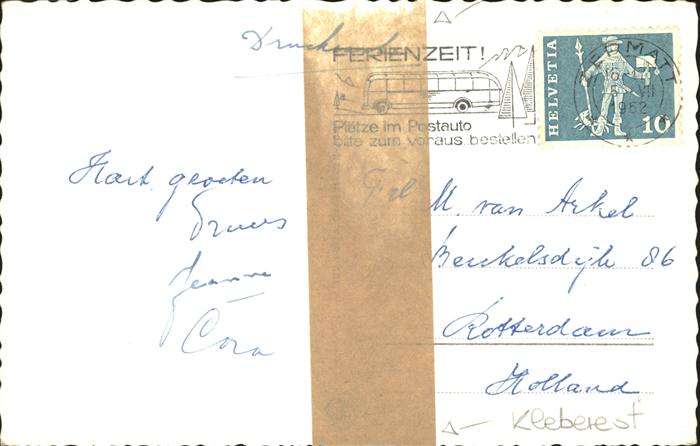 FERIENZEIT!
Plätze im Postauto
bitte zum voraus bestellen
HELVETIA
10
ZERMATT
Hart. groeten
Truus
Jeanne
Cora
Frl. M. van Arkel
Beukelsdijk 86
Rotterdam
Holland
Kleberest